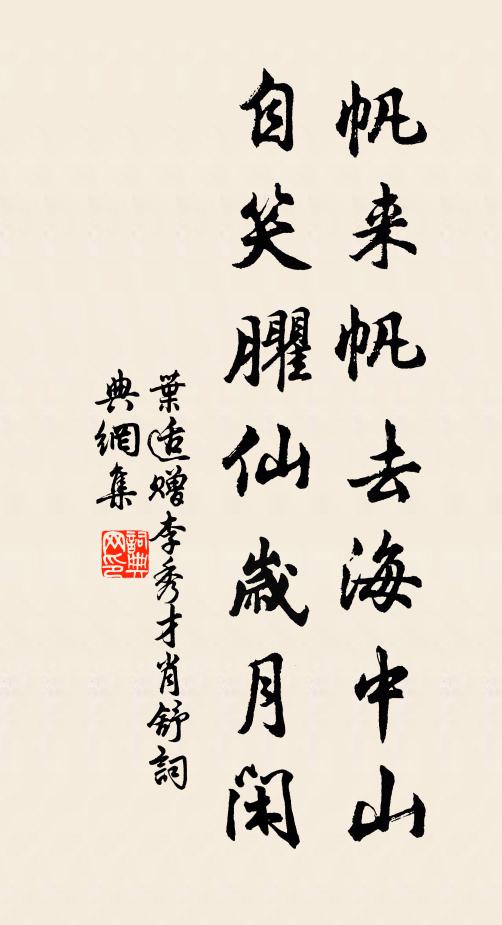 帆来帆去海中山
自笑臞仙歳月闲
葉适赠李秀才肖舒詞
典網集
詞典
网印